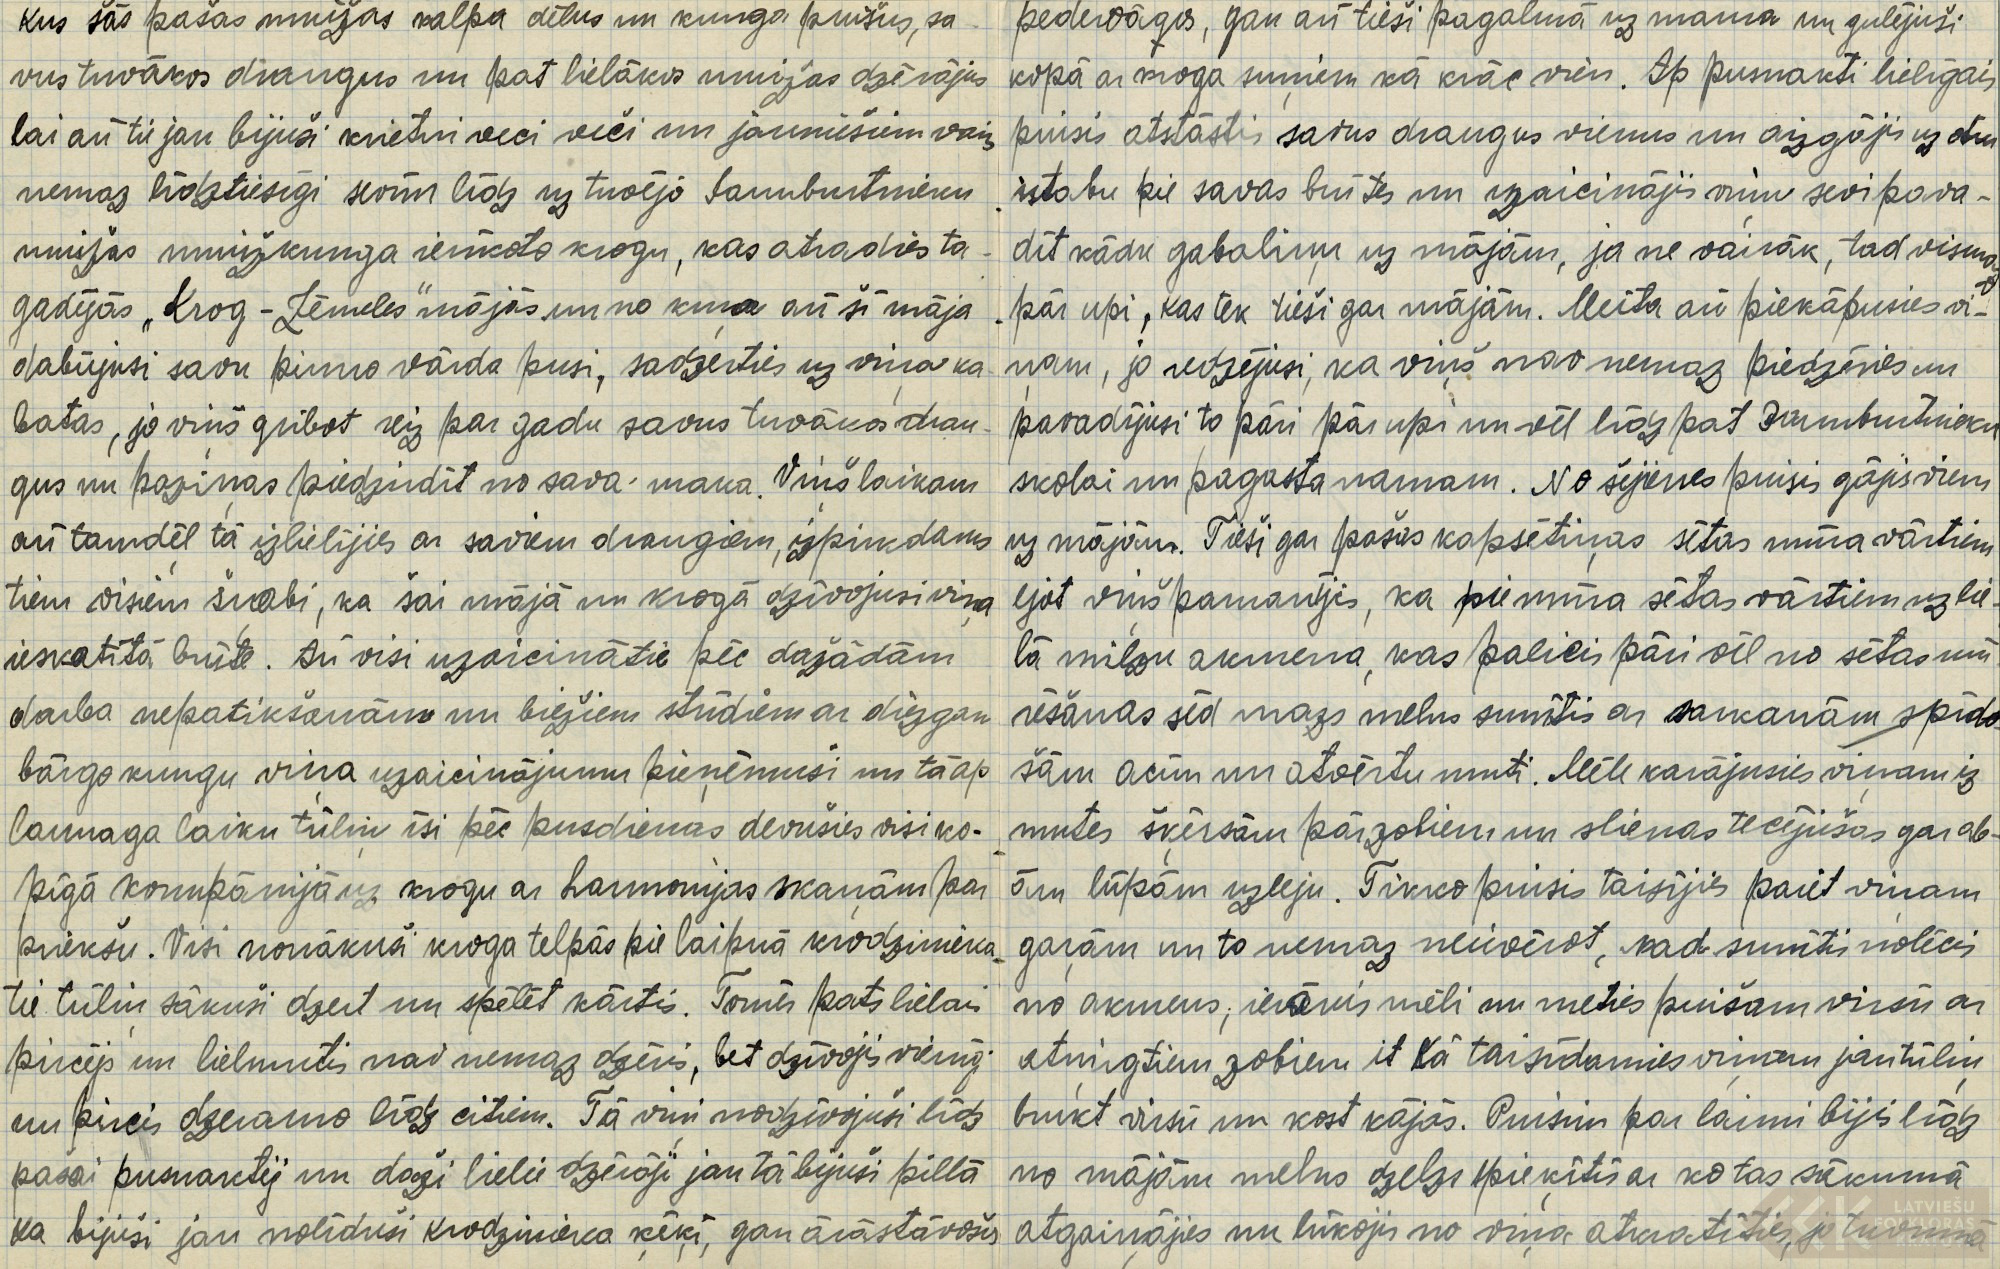 kus šās pašas muižas kalpa dēlus un kunga puišus, sa-
vus tuvākos draugus un pat lielākos muižas dzērājus
lai arī tie jau bijuši krietni veci večī un jauniešiem vairs
nemaz līdztiesīgi sevim līdz uz tuvējo Lambertmiera
muižas muižkunga ierīkoto krogu, kas atradies ta-
gadējās „Krog-Zēmeles" mājās un no kura arī šī māja
dabūjusi savu pirmo vārda pusi, sadzerties uz viņa ka-
batas, jo viņš gribot reiz par gadu savus tuvākos drau-
gus un paziņas piedzirdīt no sava maka. Viņš laikam
arī tamdēļ tā izlielījies ar saviem draugiem, izpirkdams
tiem visiem šņabi, ka šai mājā un krogā dzīvojusi viņa
ieskatītā brūte. Arī visi uzaicinātie pēc dažādām
darba nepatikšanām un biežiem strīdiem ar diezgan
bārgo kungu viņa uzaicinājumu pieņēmuši un tā ap
launaga laiku tūliņ īsi pēc pusdienas devušies visi ko-
pīgā kompānijā uz krogu ar harmonijas skaņām par
priekšu. Visi nonākuši kroga telpās pie laipnā krodzinieka
tie tūliņ sākuši dzert un spēlēt kārtis. Tomēr pats lielais
pircējs un lielmutis nav nemaz dzēris, bet dzīvojis vienīgi
un pircis dzeramo līdz citiem. Tā viņi nodzīvojuši līdz
pašai pusnaktij un daži lielie dzērāji jau tā bijuši pillā
ka bijuši jau nolīduši krodzinieka ķēķī, gan ārā stāvošos
pedervāģos, gan arī tieši pagalmā uz maura un gulējuši
kopā ar kroga suņiem kā krāc vien. Ap pusnakti lielīgais
puisis atstāstis savus draugus vienus un aizgājis uz otru
istabu pie savas brūtes un uzaicinājis viņu sevi pava-
dīt kādu gabaliņu uz mājām, ja ne vairāk, tad vismaz
pār upi, kas tek tieši gar mājām. Meita arī piekāpusies vi-
ņam, jo redzējusi, ka viņš nav nemaz piedzēries un
pavadījusi to pāri pār upi un vēl līdz pat Drumbertnieku
skolai un pagasta namam. No šejienes puisis gājis viens
uz mājām. Tieši gar pašas kapsētiņas sētas mūra vārtiem
ejot viņš pamanījis, ka pie mūra sētas vārtiem uz lie-
lā milzu akmeņa, kas palicis pāri vēl no sētas mū-
rēšanas sēd mazs melns sunītis ar sarkanām spīdo-
šām acīm un atvērtu muti. Mēle karājusies viņam iz
mutes šķērsām pār zobiem un slienas tecējušas gar ab-
ām lūpām uz leju. Tikko puisis taisījis paiet viņam
garām un to nemaz neievērot, kad sunītis nolēcis
no akmens, ierāvis mēli un meties puišam virsū ar
atņirgtiem zobiem it kā taisīdamies viņam jau tūliņ
brukt virsū un kost kājās. Puisim par laimi bijis līdz
no mājām melns dzelzs spieķītis ar ko tas sākumā
atgaiņājies un lūkojis no viņa atkratīties, jo tuvumā
LATVIEŠU
FOLKLORAS